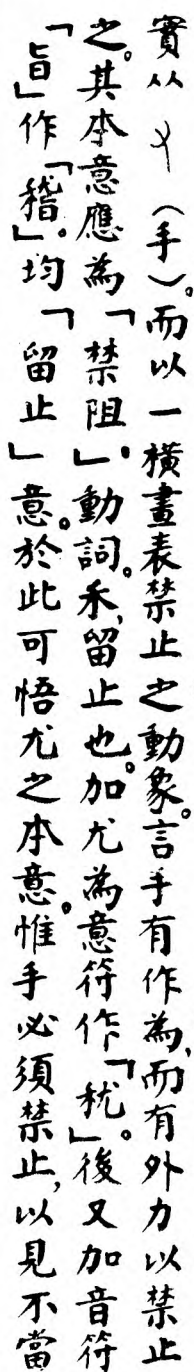 實从又（手）。而以一橫畫表禁止之動象。言手有作為，而有外力以禁止
之。其本意應為「禁阻」。動詞。禾，留止也。加尤為意符作「䅄」。後又加音符
「旨」作「稽」。均「留止」意。於此可悟尤之本意。惟手必須禁止，以見不當